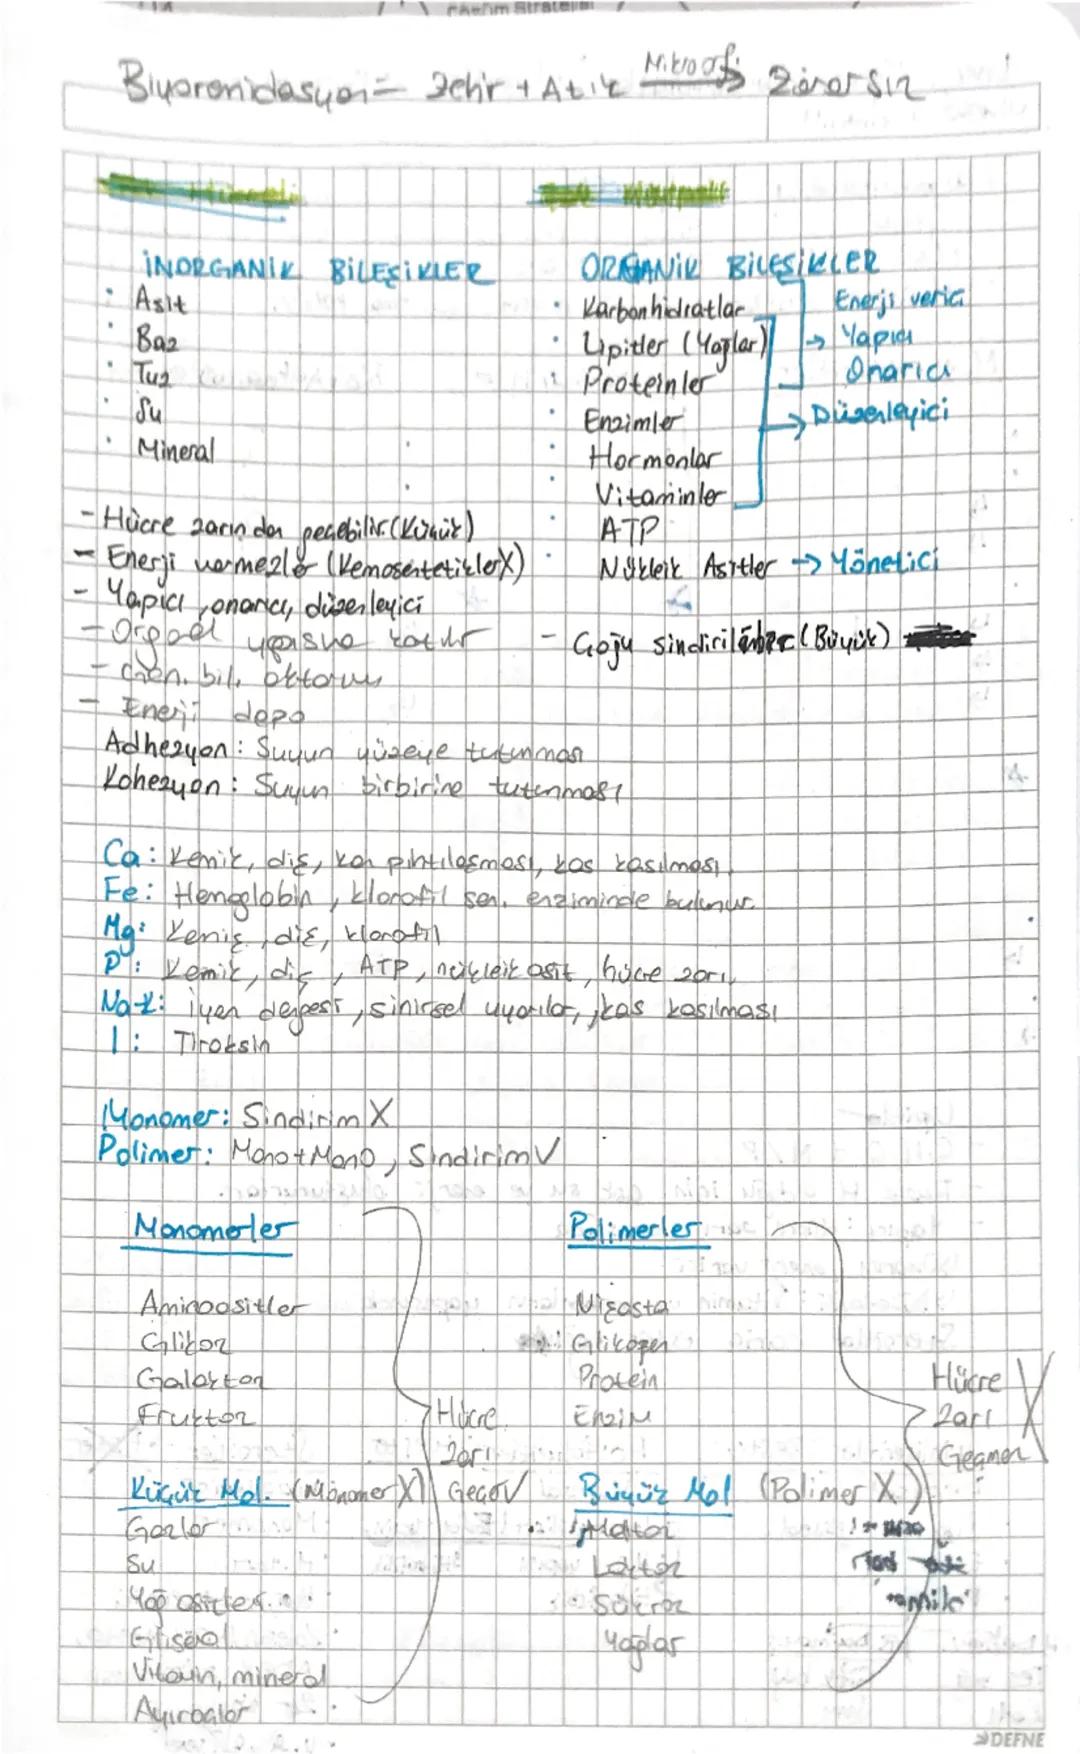 Biyoremidasyon = Zehir + Atık Mikroorg. → Zararsız
İNORGANİK BİLEŞİKLER
• Asit
• Baz
• Tuz
• Su
• Mineral
- Hücre zarından geçebilir. (Küçük)
- Enerji vermezler (KemosentetiklerX)
- Yapıcı, onarıcı, düzenleyici
- Organel yapısına katılır
- Gen. bil. aktarımı
- Enerji depo
ORGANİK BİLEŞİKLER
• Karbonhidratlar
• Lipitler (Yağlar)
• Proteinler
• Enzimler
• Hormonlar
• Vitaminler
• ATP
• Nükleik Asitler → Yönetici
Enerji verici
→ Yapıcı
Onarıcı
→ Düzenleyici
- Çoğu sindirilemez (Büyük)
Adhezyon: Suyun yüzeye tutunması
Kohezyon: Suyun birbirine tutunması
Ca: Kemik, diş, kan pıhtılaşması, kas kasılması,
Fe: Hemoglobin, klorofil sen. enziminde bulunur.
Mg: Kemiş, diş, klorofil
P: Kemik, diş, ATP, nükleik asit, hücre zarı,
Na-K: İyon dengesi, sinirsel uyarılar, kas kasılması
I: Tiroksin
Monomer: Sindirim X
Polimer: Mono+Mono, Sindirim√
Monomerler
Aminoasitler
Glikoz
Galaktoz
Fruktoz
Küçük Mol. (Monomer X)
Gazlar
Su
Yağ asitleri
Gliserol
Vitamin, mineral
Ayıraçlar
Hücre
Zarı
Geçer√
Polimerler
Nişasta
Glikojen
Protein
Enzim
Büyük Mol (Polimer X)
Maltoz
Laktoz
Sükroz
Yağlar
Hücre
Zarı
Geçmez X
DEFNE